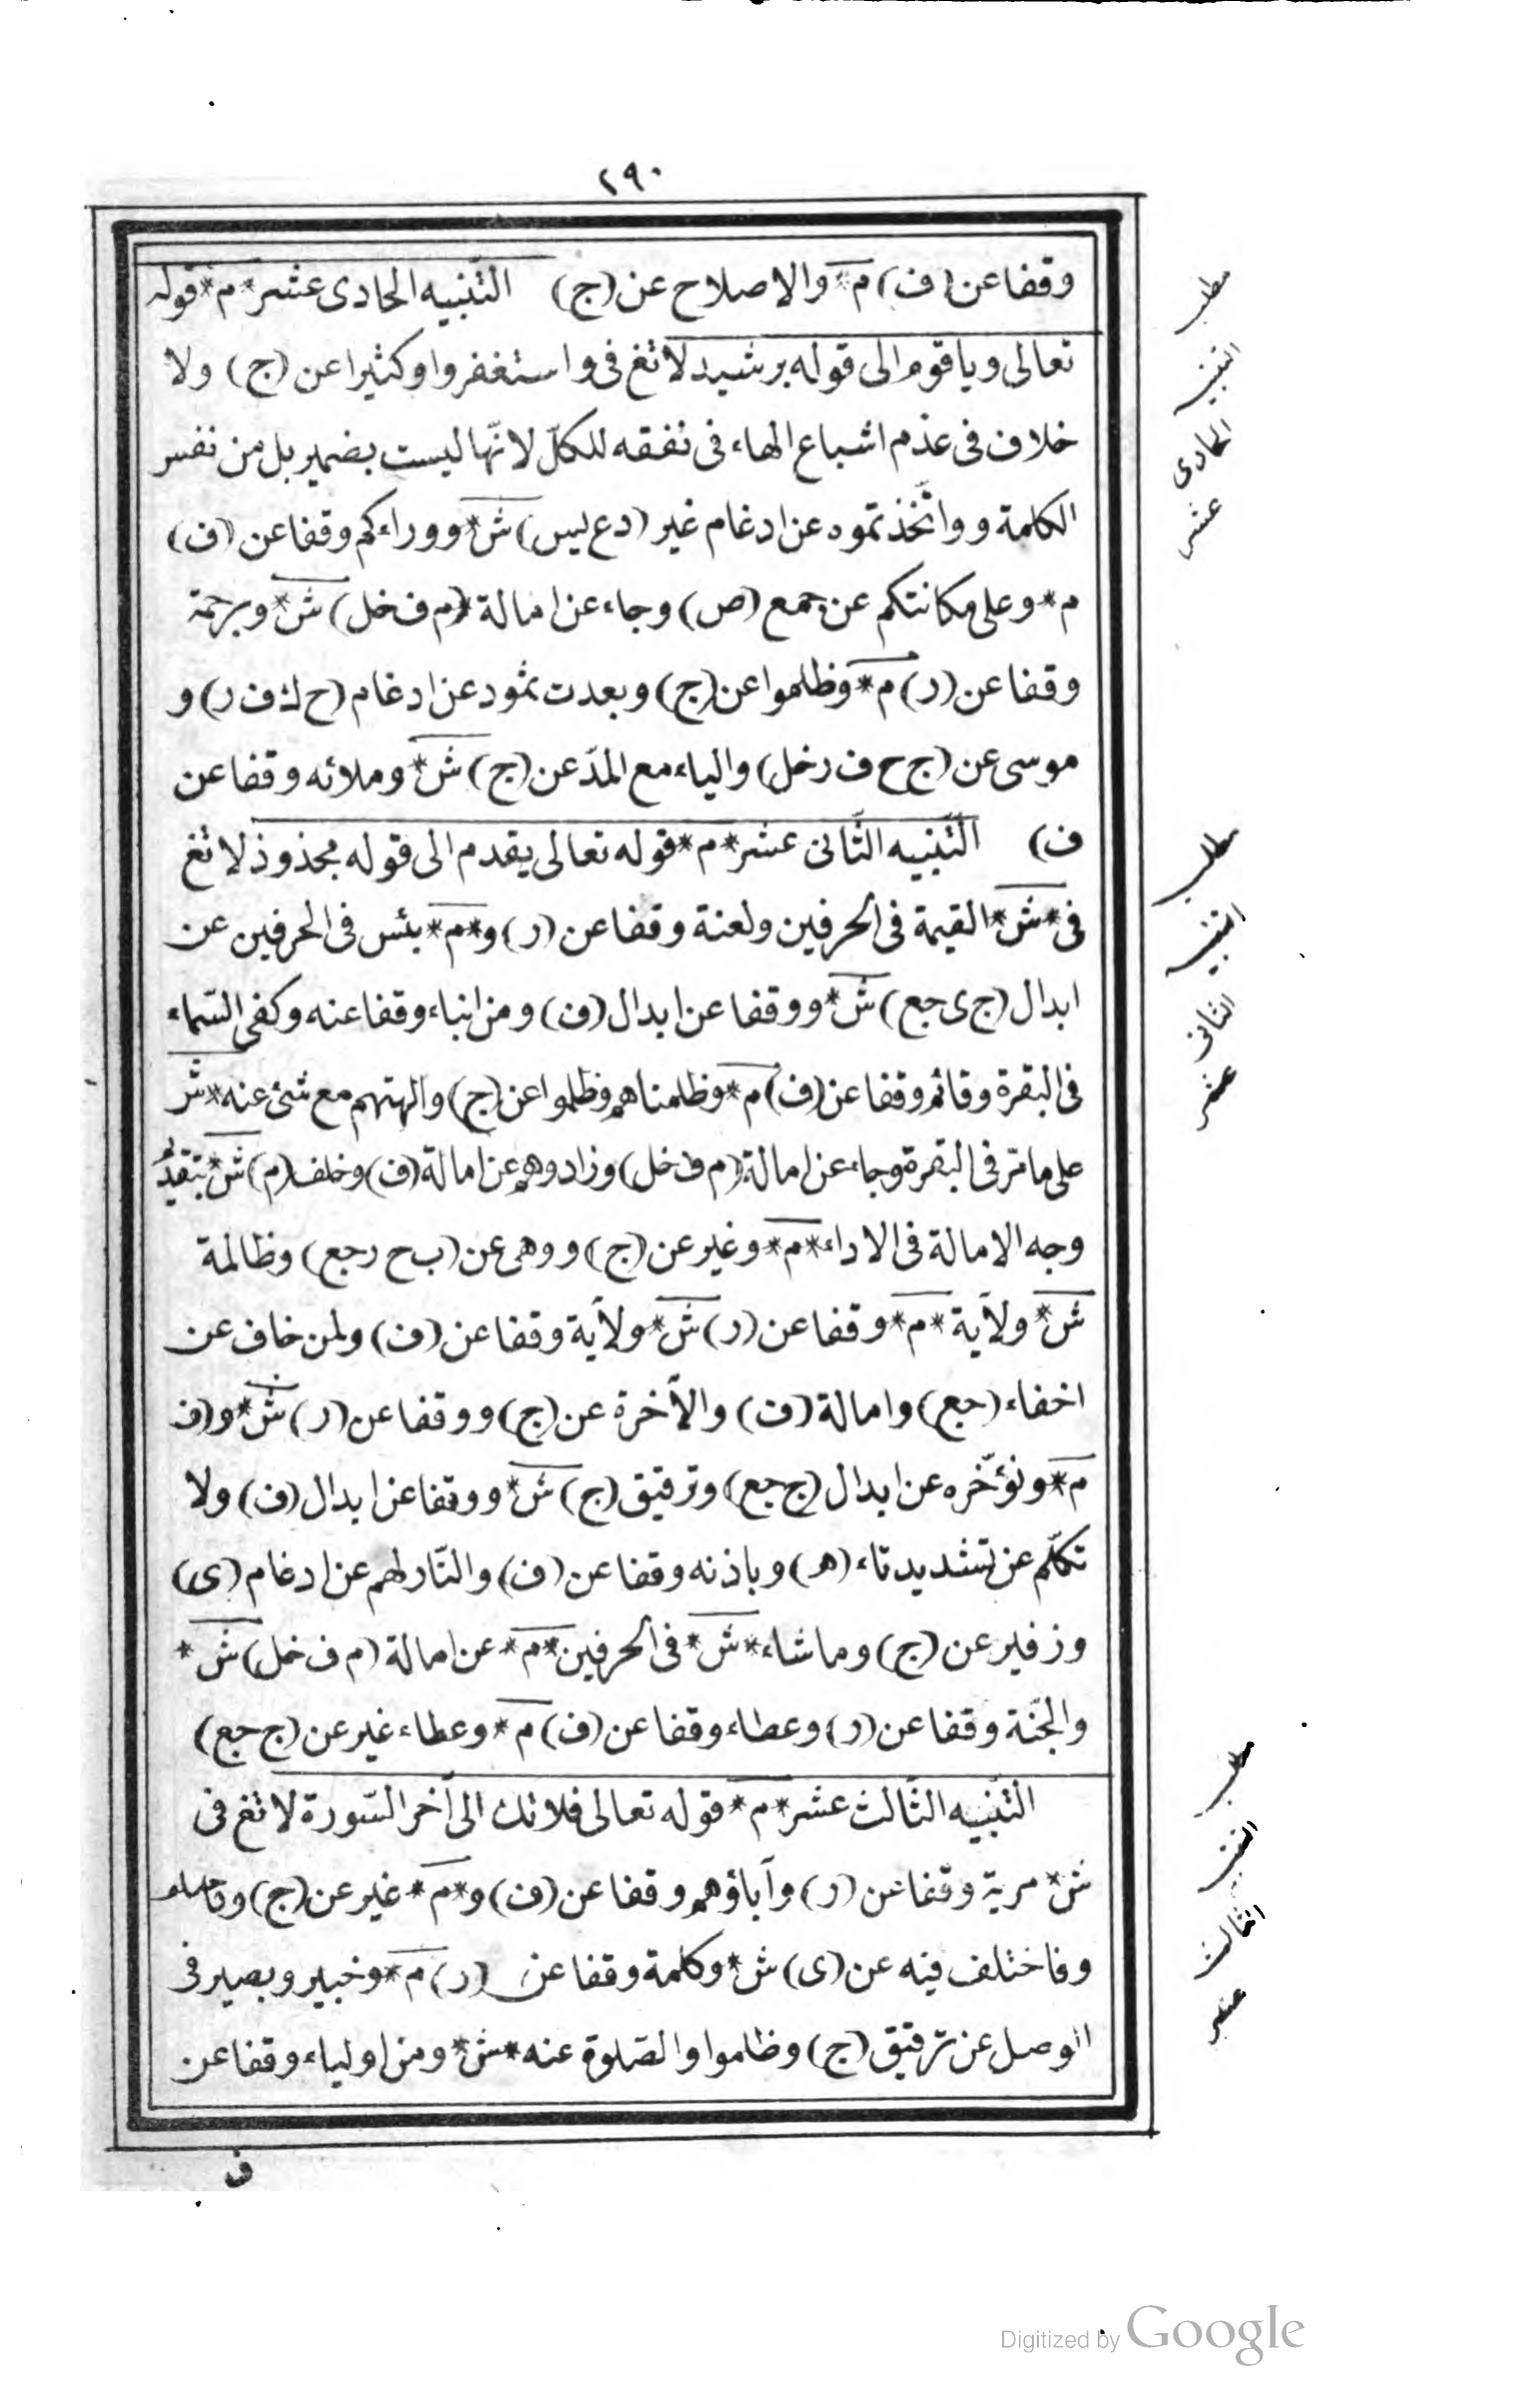 ٢٩٠
وقفا عن (ف) م* والاصلاح عن (ج) التّنبيه الحادى عشر *م* قوله
تعالى وياقوم الى قوله برشيد لا تغ فى واستغفروا وكثيرا عن (ج) ولا
خلاف فى عدم اشباع الهاء فى نفقه للكلّ لانّها ليست بضمير بل من نفس
الكلمة وواتّخذتموه عن ادغام غير (دع ليس) ش* ووراءكم وقفا عن (ف)
م* وعلى مكانتكم عن جمع (ص) وجاء عن امالة (م ف خل) ش* وبرحمة
وقفا عن (ر) م* وظلموا عن (ج) وبعدت ثمود عن ادغام (ح ك ف ر) و
موسى عن (ج ح ف ر خل) والياء مع المدّ عن (ج) ش* وملائه وقفا عن
ف) التّنبيه الثّانى عشر *م* قوله تعالى يقدم الى قوله مجذوذ لا تغ
فى *ش* القيمة فى الحرفين ولعنة وقفا عن (ر) و*م* بئس فى الحرفين عن
ابدال (ج ى جع) ش* ووقفا عن ابدال (ف) ومن انباء وقفا عنه وكفى السّماء
فى البقرة وقائم وقفا عن (ف) م* وظلمناهم وظلموا عن (ج) والهتهم مع شئ عنه *ش
على ما مرّ فى البقرة وجاء عن امالة (م ف خل) وزادوهم عن امالة (ف) وخلف (م) ش* بتقديم
وجه الامالة فى الاداء *م* وغير عن (ج) ووهى عن (ب ح ر جع) وظالمة
ش* ولآية *م* وقفا عن (ر) ش* ولآية وقفا عن (ف) ولمن خاف عن
اخفاء (جع) وامالة (ف) والآخرة عن (ج) ووقفا عن (ر) ش* و(ف
م* ونؤخّره عن ابدال (ج جع) وترقيق (ج) ش* ووقفا عن ابدال (ف) ولا
تكلّم عن تشديد تاء (ه) وباذنه وقفا عن (ف) والنّار لهم عن ادغام (ى)
وزفير عن (ج) وما شاء *ش* فى الحرفين *م* عن امالة (م ف خل) ش*
والجنّة وقفا عن (ر) وعطاء وقفا عن (ف) م* وعطاء غير عن (ج جع)
التّنبيه الثّالث عشر *م* قوله تعالى فلا تك الى آخر السّورة لا تغ فى
ش* مرية وقفا عن (ر) وآباؤهم وقفا عن (ف) و*م* غير عن (ج)
وفاختلف فيه عن (ى) ش* وكلمة وقفا عن (ر) م* وخبير وبصير فى
الوصل عن ترقيق (ج) وظلموا والصّلوة عنه *ش* ومن اولياء وقفا عن
ف
مطلب
التنبيه
الحادى
عشر
مطلب
التنبيه
الثانى
عشر
مطلب
التنبيه
الثالث
عشر
Digitized by Google